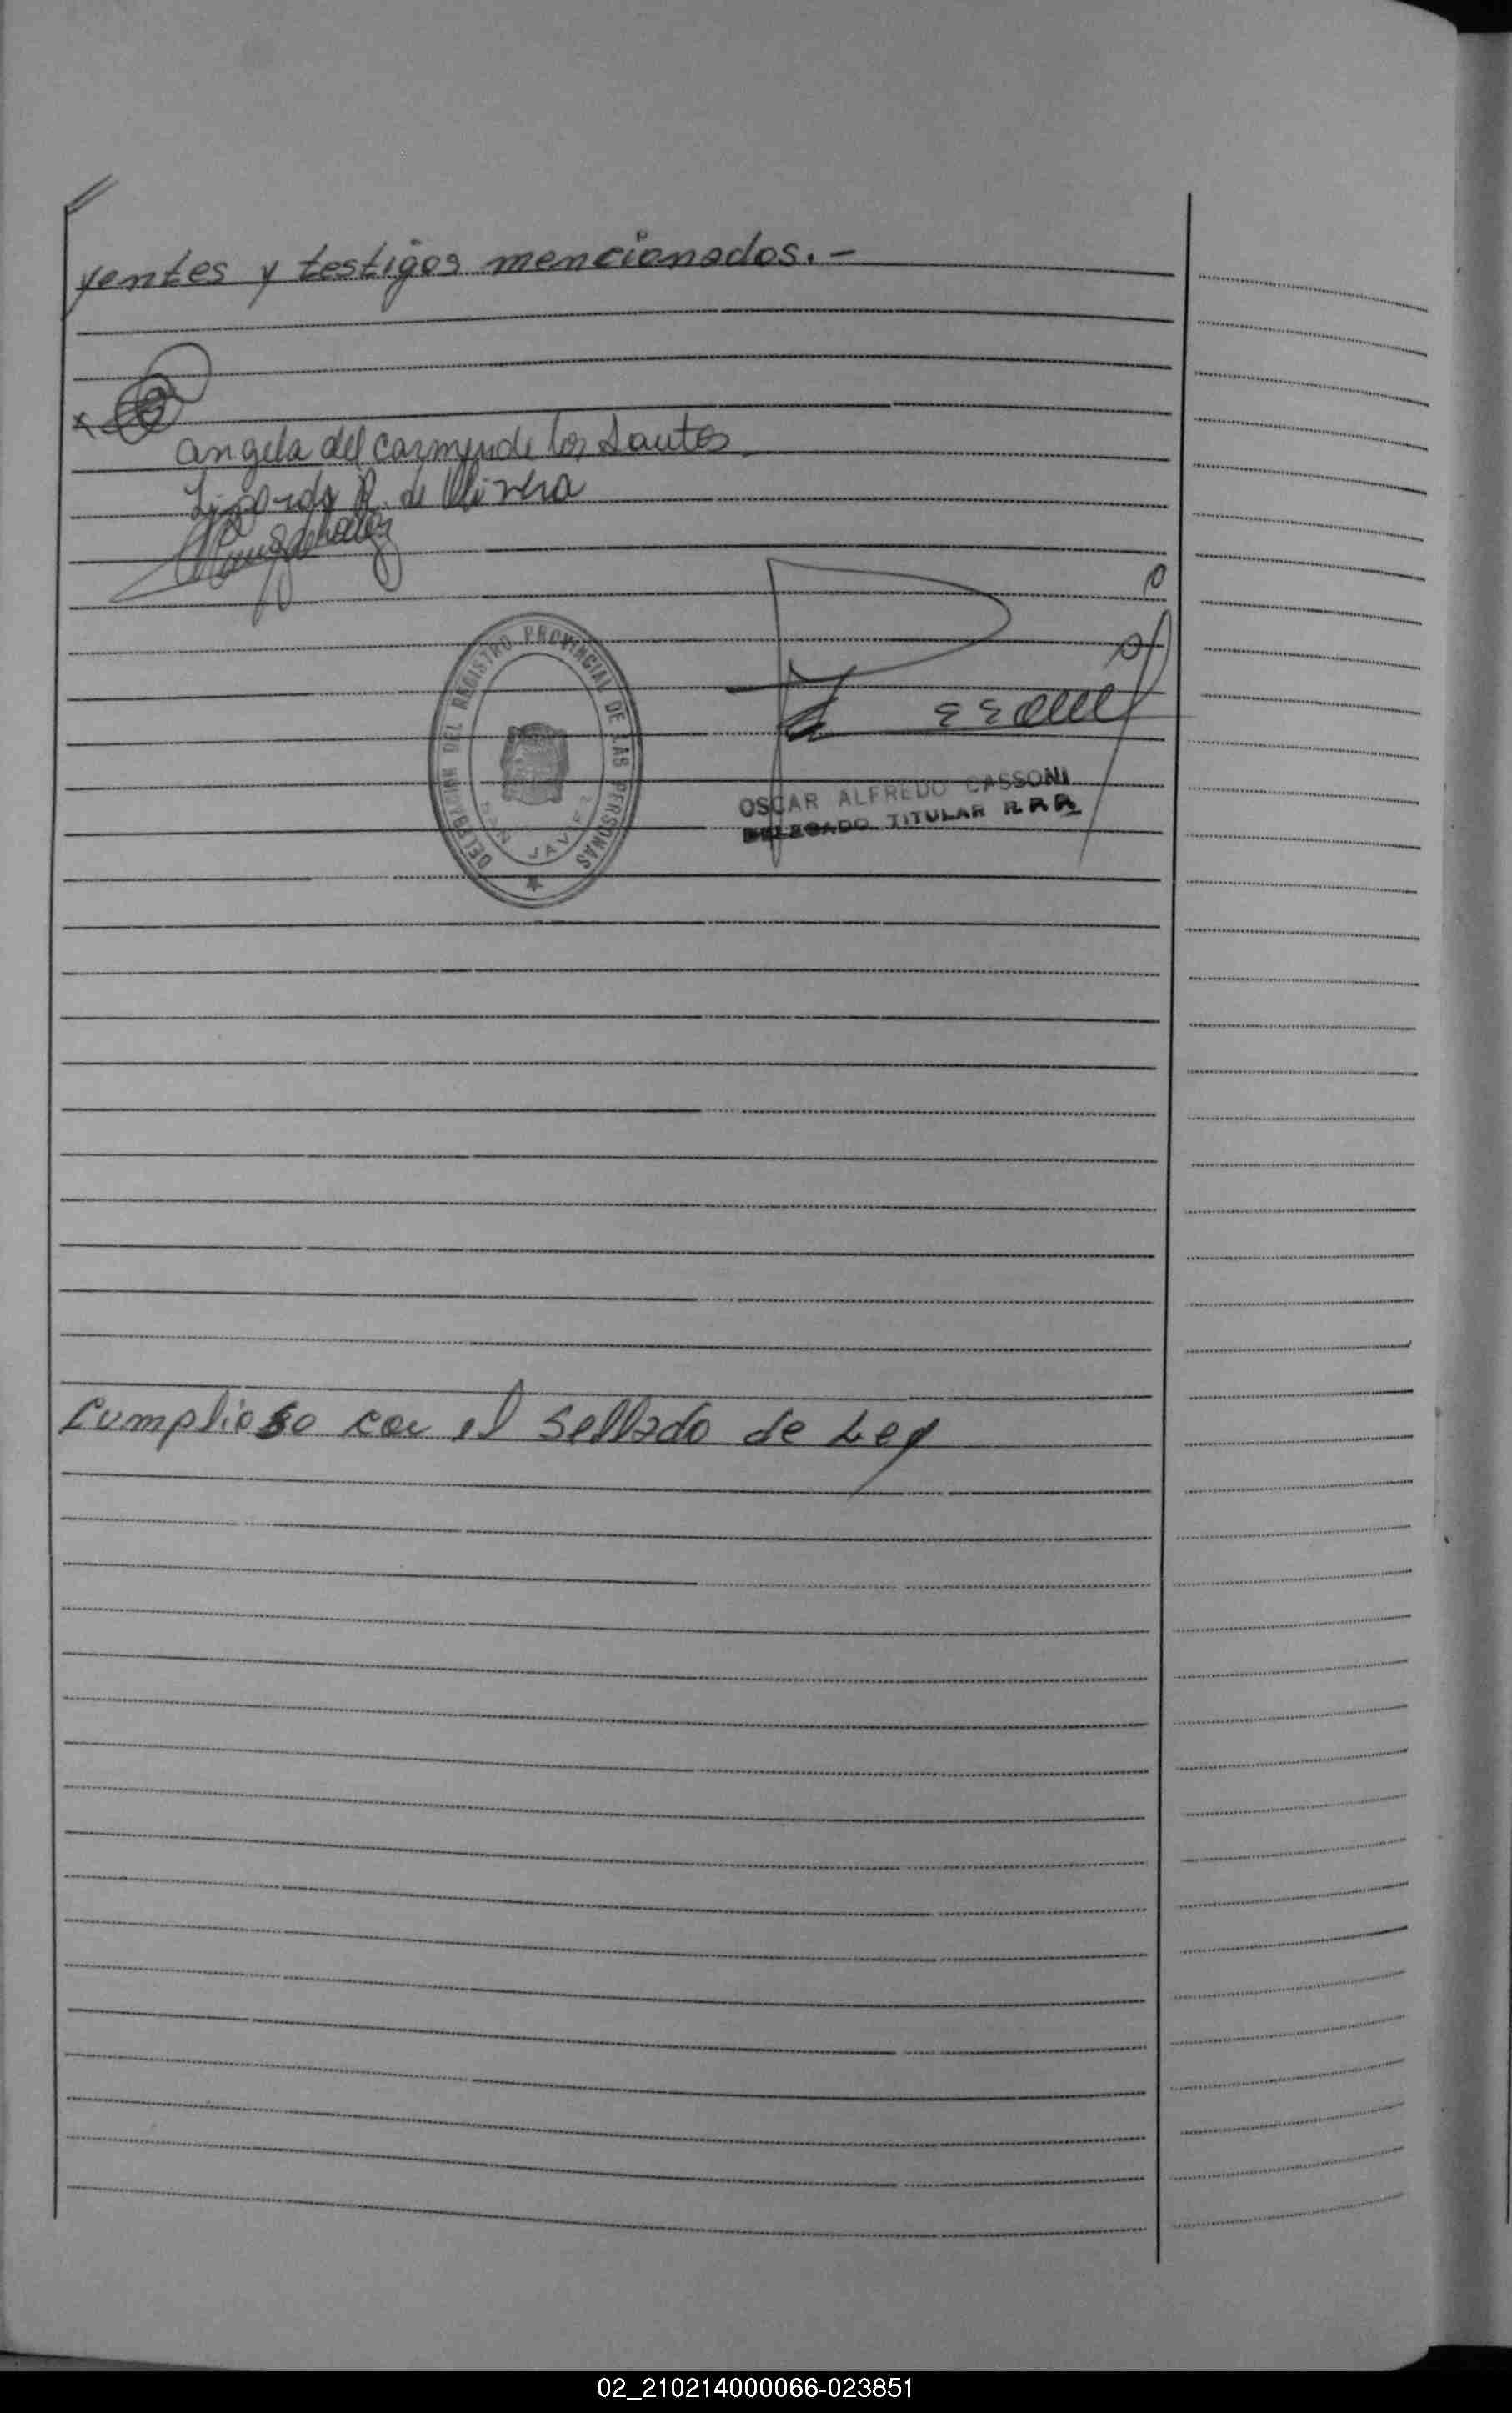 yentes y testigos mencionados.-
angela del carmen de los Santos
de Olivera
DELEGACION DEL REGISTRO PROVINCIAL DE LAS PERSONAS
SAN JAVIER
OSCAR ALFREDO CASSONI
DELEGADO TITULAR R.P.P.
Cumplioso con el Sellado de Ley
02_210214000066-023851